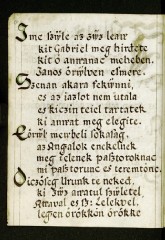 Ime szwle az szwz leant
kit Gabriel meg hirdete
kit o annanac meheben
Ianos örwlven esmere.
Szenan akara feküwni,
es az iazlot nem utala
es kiczin teiel tartatek
ki anrat meg elegite.
Eörwle menbeli sokasag,
az Angalok enekelnek
meg ielenek pasztoroknac
mi pasztorunc es teremtönc
Diczöseg Urunk te neked,
ki szwz anratul szwlettel
Attaval es sz: Lelekvel,
legien örökkön örökke